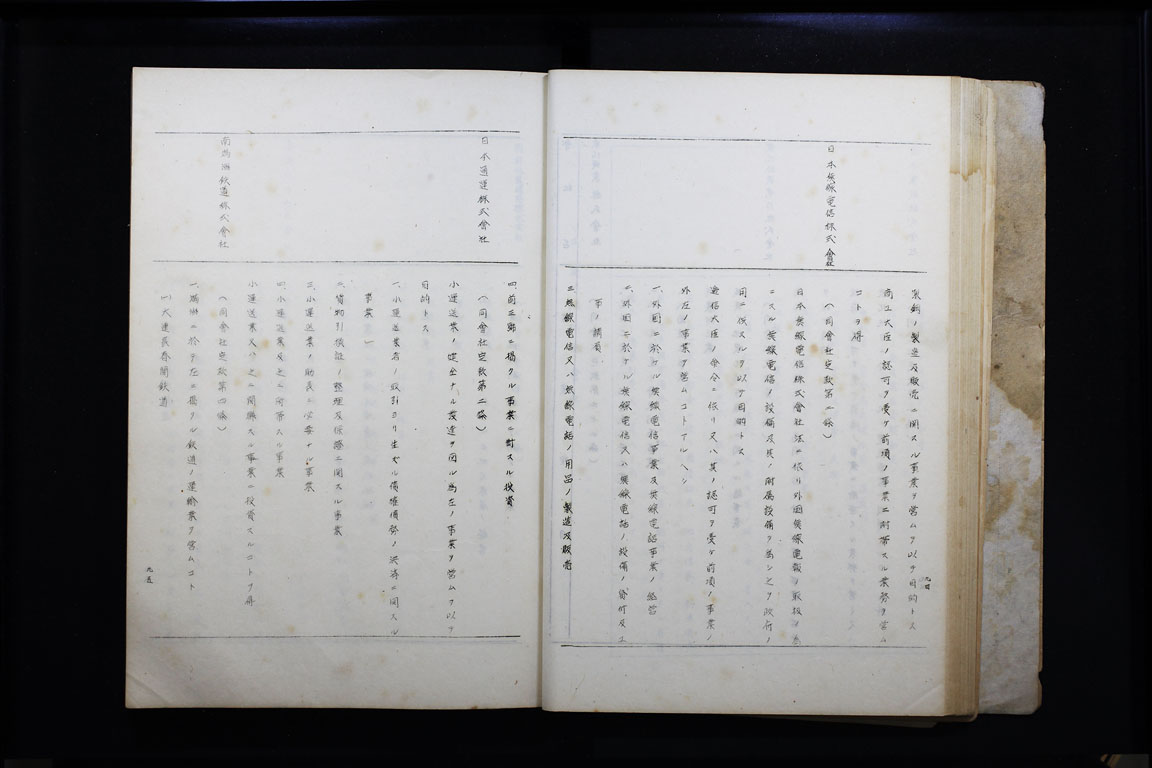 製鋼ノ製造及販売ニ関スル事業ヲ営ムヲ以テ目的トス
商工大臣ノ認可ヲ受ケ前項ノ事業ニ附帯スル業務ヲ営ム
コトヲ得
日本無線電信株式會社
(同會社定款第二條)
日本無線電信株式會社法ニ依リ外国無線電報ノ取扱ノ為
ニスル無線電信ノ設備及其ノ附属設備ヲ為シ之ヲ政府ノ
用ニ供スルヲ以テ目的トス
逓信大臣ノ命令ニ依リ又ハ其ノ認可ヲ受ケ前項ノ事業ノ
外左ノ事業ヲ営ムコトアルヘシ
一、外国ニ於ケル無線電信事業及無線電話事業ノ経営
二、外国ニ於ケル無線電信又ハ無線電話ノ設備ノ貸付及工
事ノ請負
三、無線電信又ハ無線電話ノ用品ノ製造及販売
九四
四、前三号ニ掲クル事業ニ対スル投資
日本通運株式會社
(同會社定款第二條)
小運送業ノ健全ナル発達ヲ図ル為左ノ事業ヲ営ムヲ以テ
目的トス
一、小運送業者ノ取引ヨリ生ズル債権債務ノ決済ニ関スル
事業
二、貨物引換証ノ整理及保証ニ関スル事業
三、小運送業ノ助長ニ必要ナル事業
四、小運送業及之ニ附帯スル事業
小運送業又ハ之ニ関聯スル事業ニ投資スルコトヲ得
南満洲鉄道株式會社
(同會社定款第四條)
一、満洲ニ於テ左ニ掲クル鉄道ノ運輸業ヲ営ムコト
一、大連長春間鉄道
九五